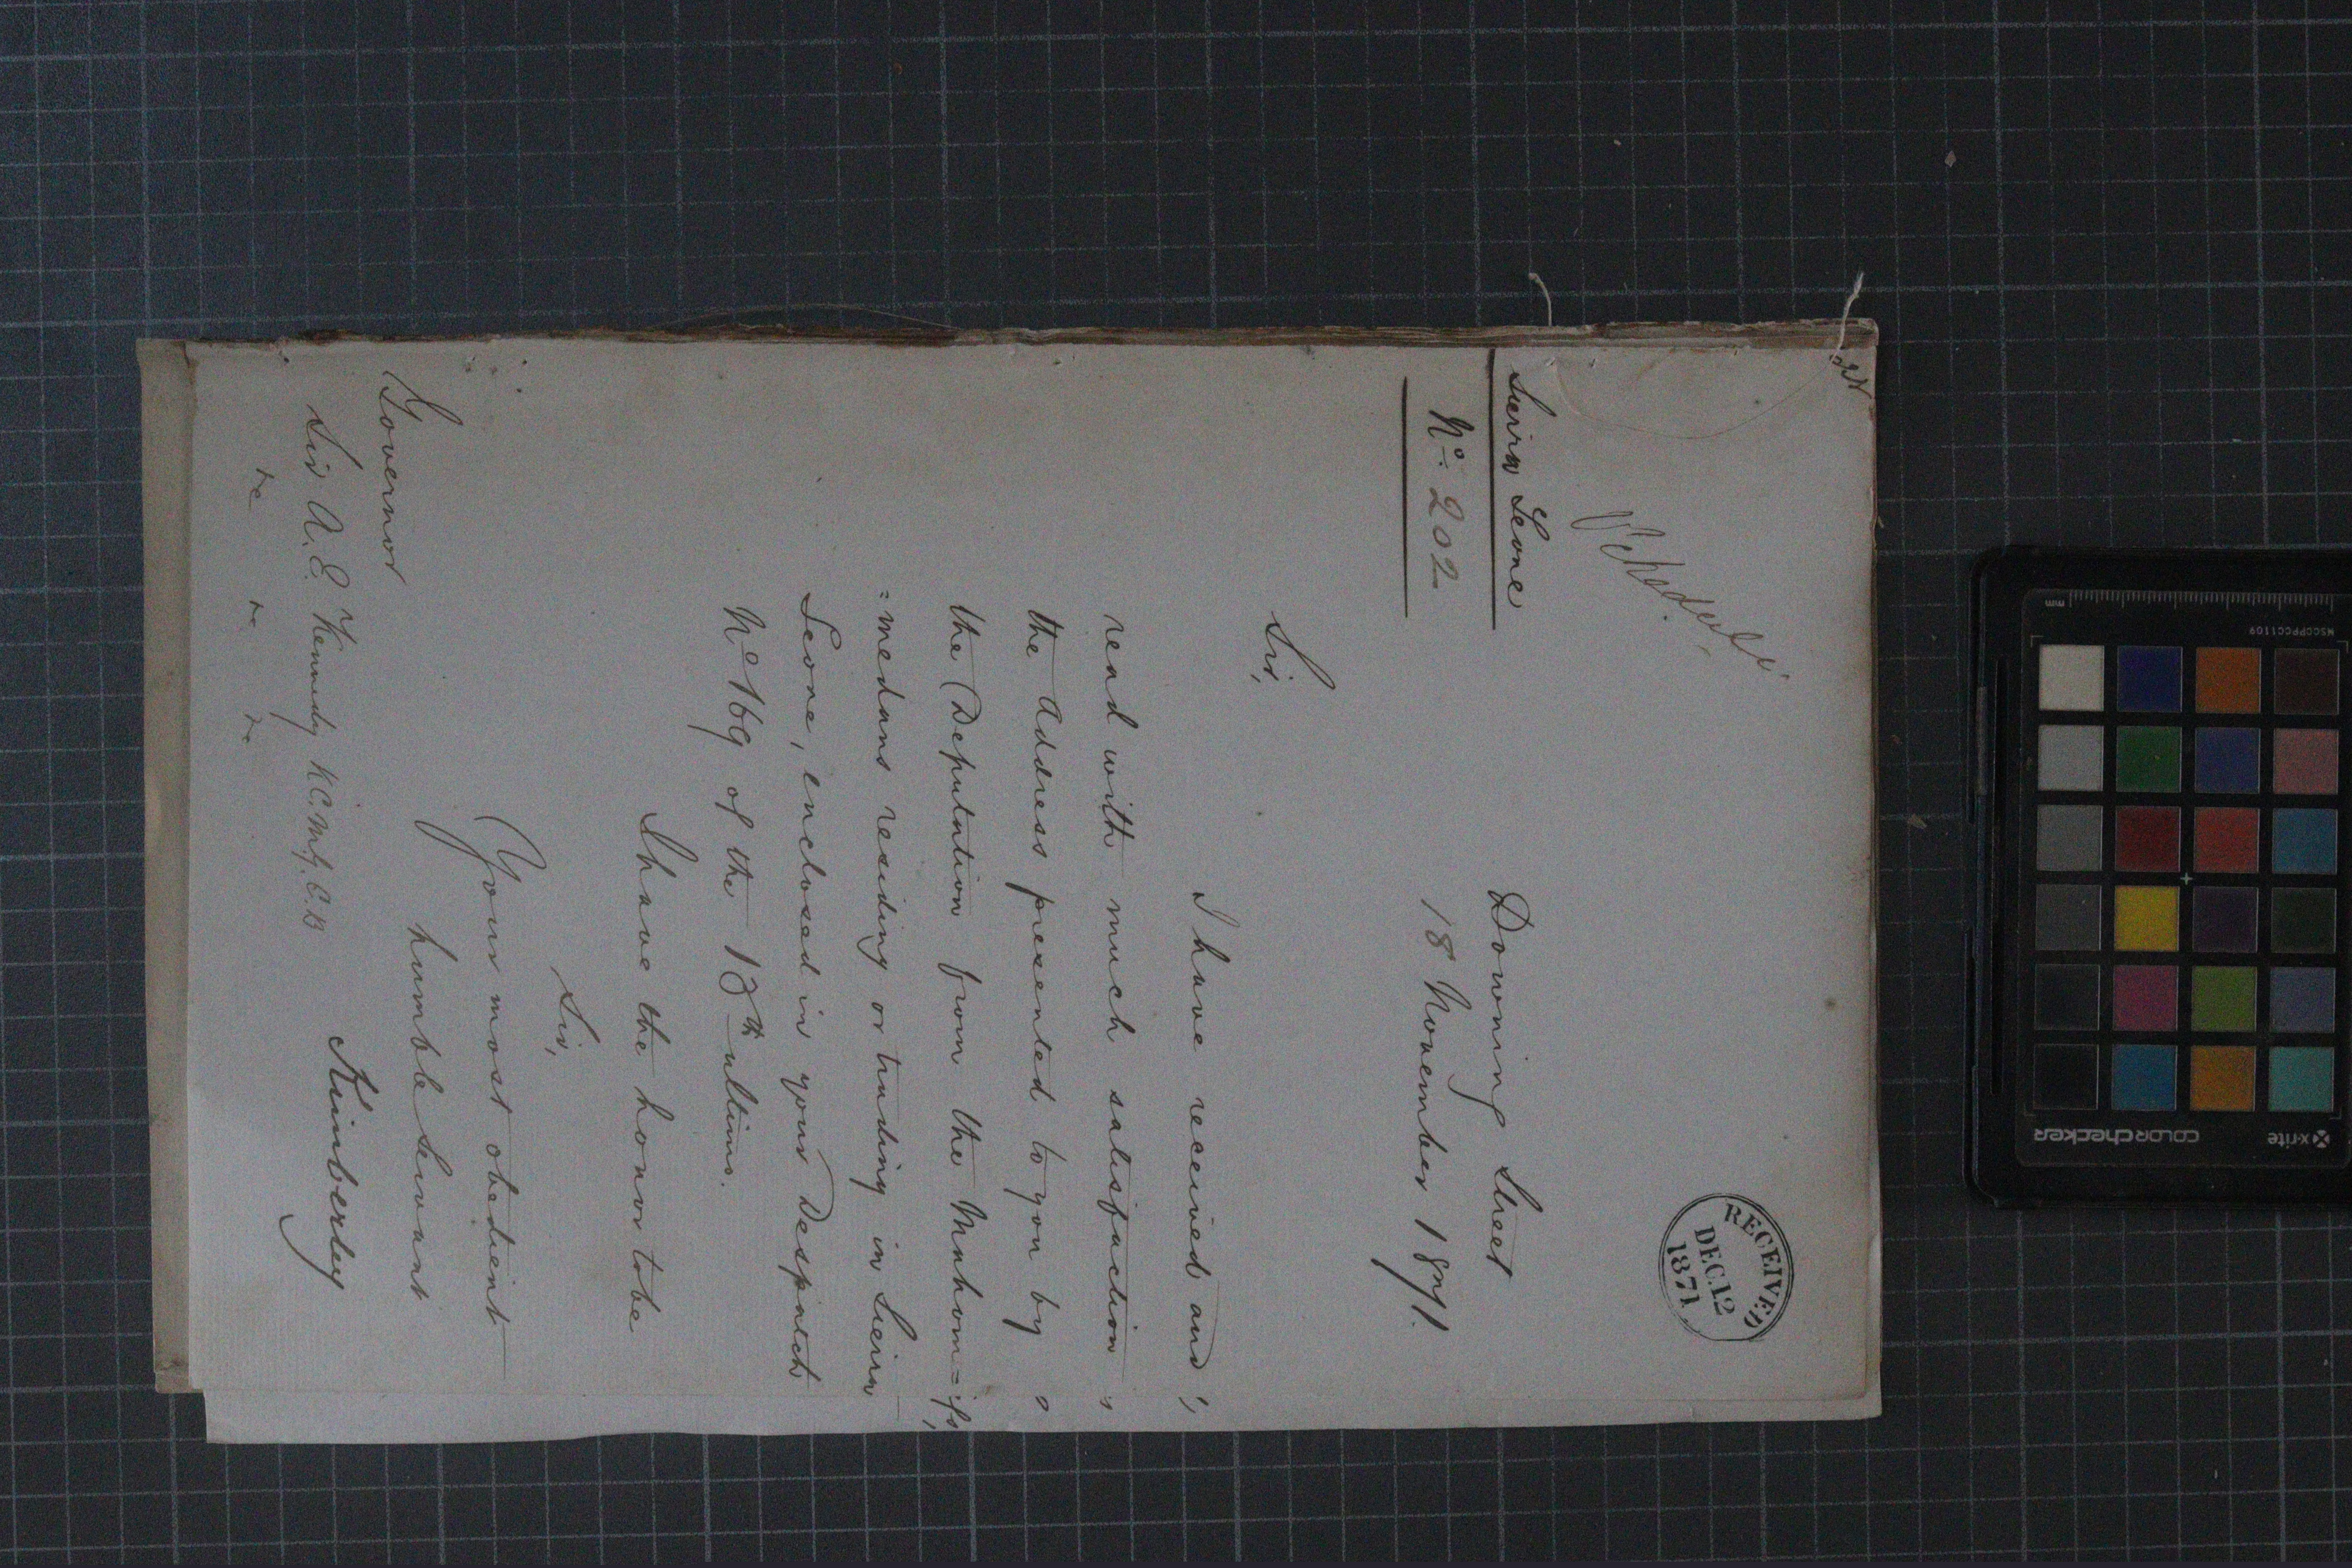 Schedule
RECEIVED
DEC. 12
1871
Sierra Leone
No. 202
Downing Street
18 November 1871.
Sir,
I have received and
read with much satisfaction
the Address presented to you by
the Deputation from the Mahom=
=medans residing or trading in Sierra
Leone, enclosed in your Despatch
No 169 of the 13th ultimo.
I have the honor to be
Sir,
Your most obedient
humble Servant
Kimberley
Governor
Sir A. E. Kennedy K.C.M.G. C.B
&c &c &c
x-rite
colorchecker
MSCCPPCC1109
mm